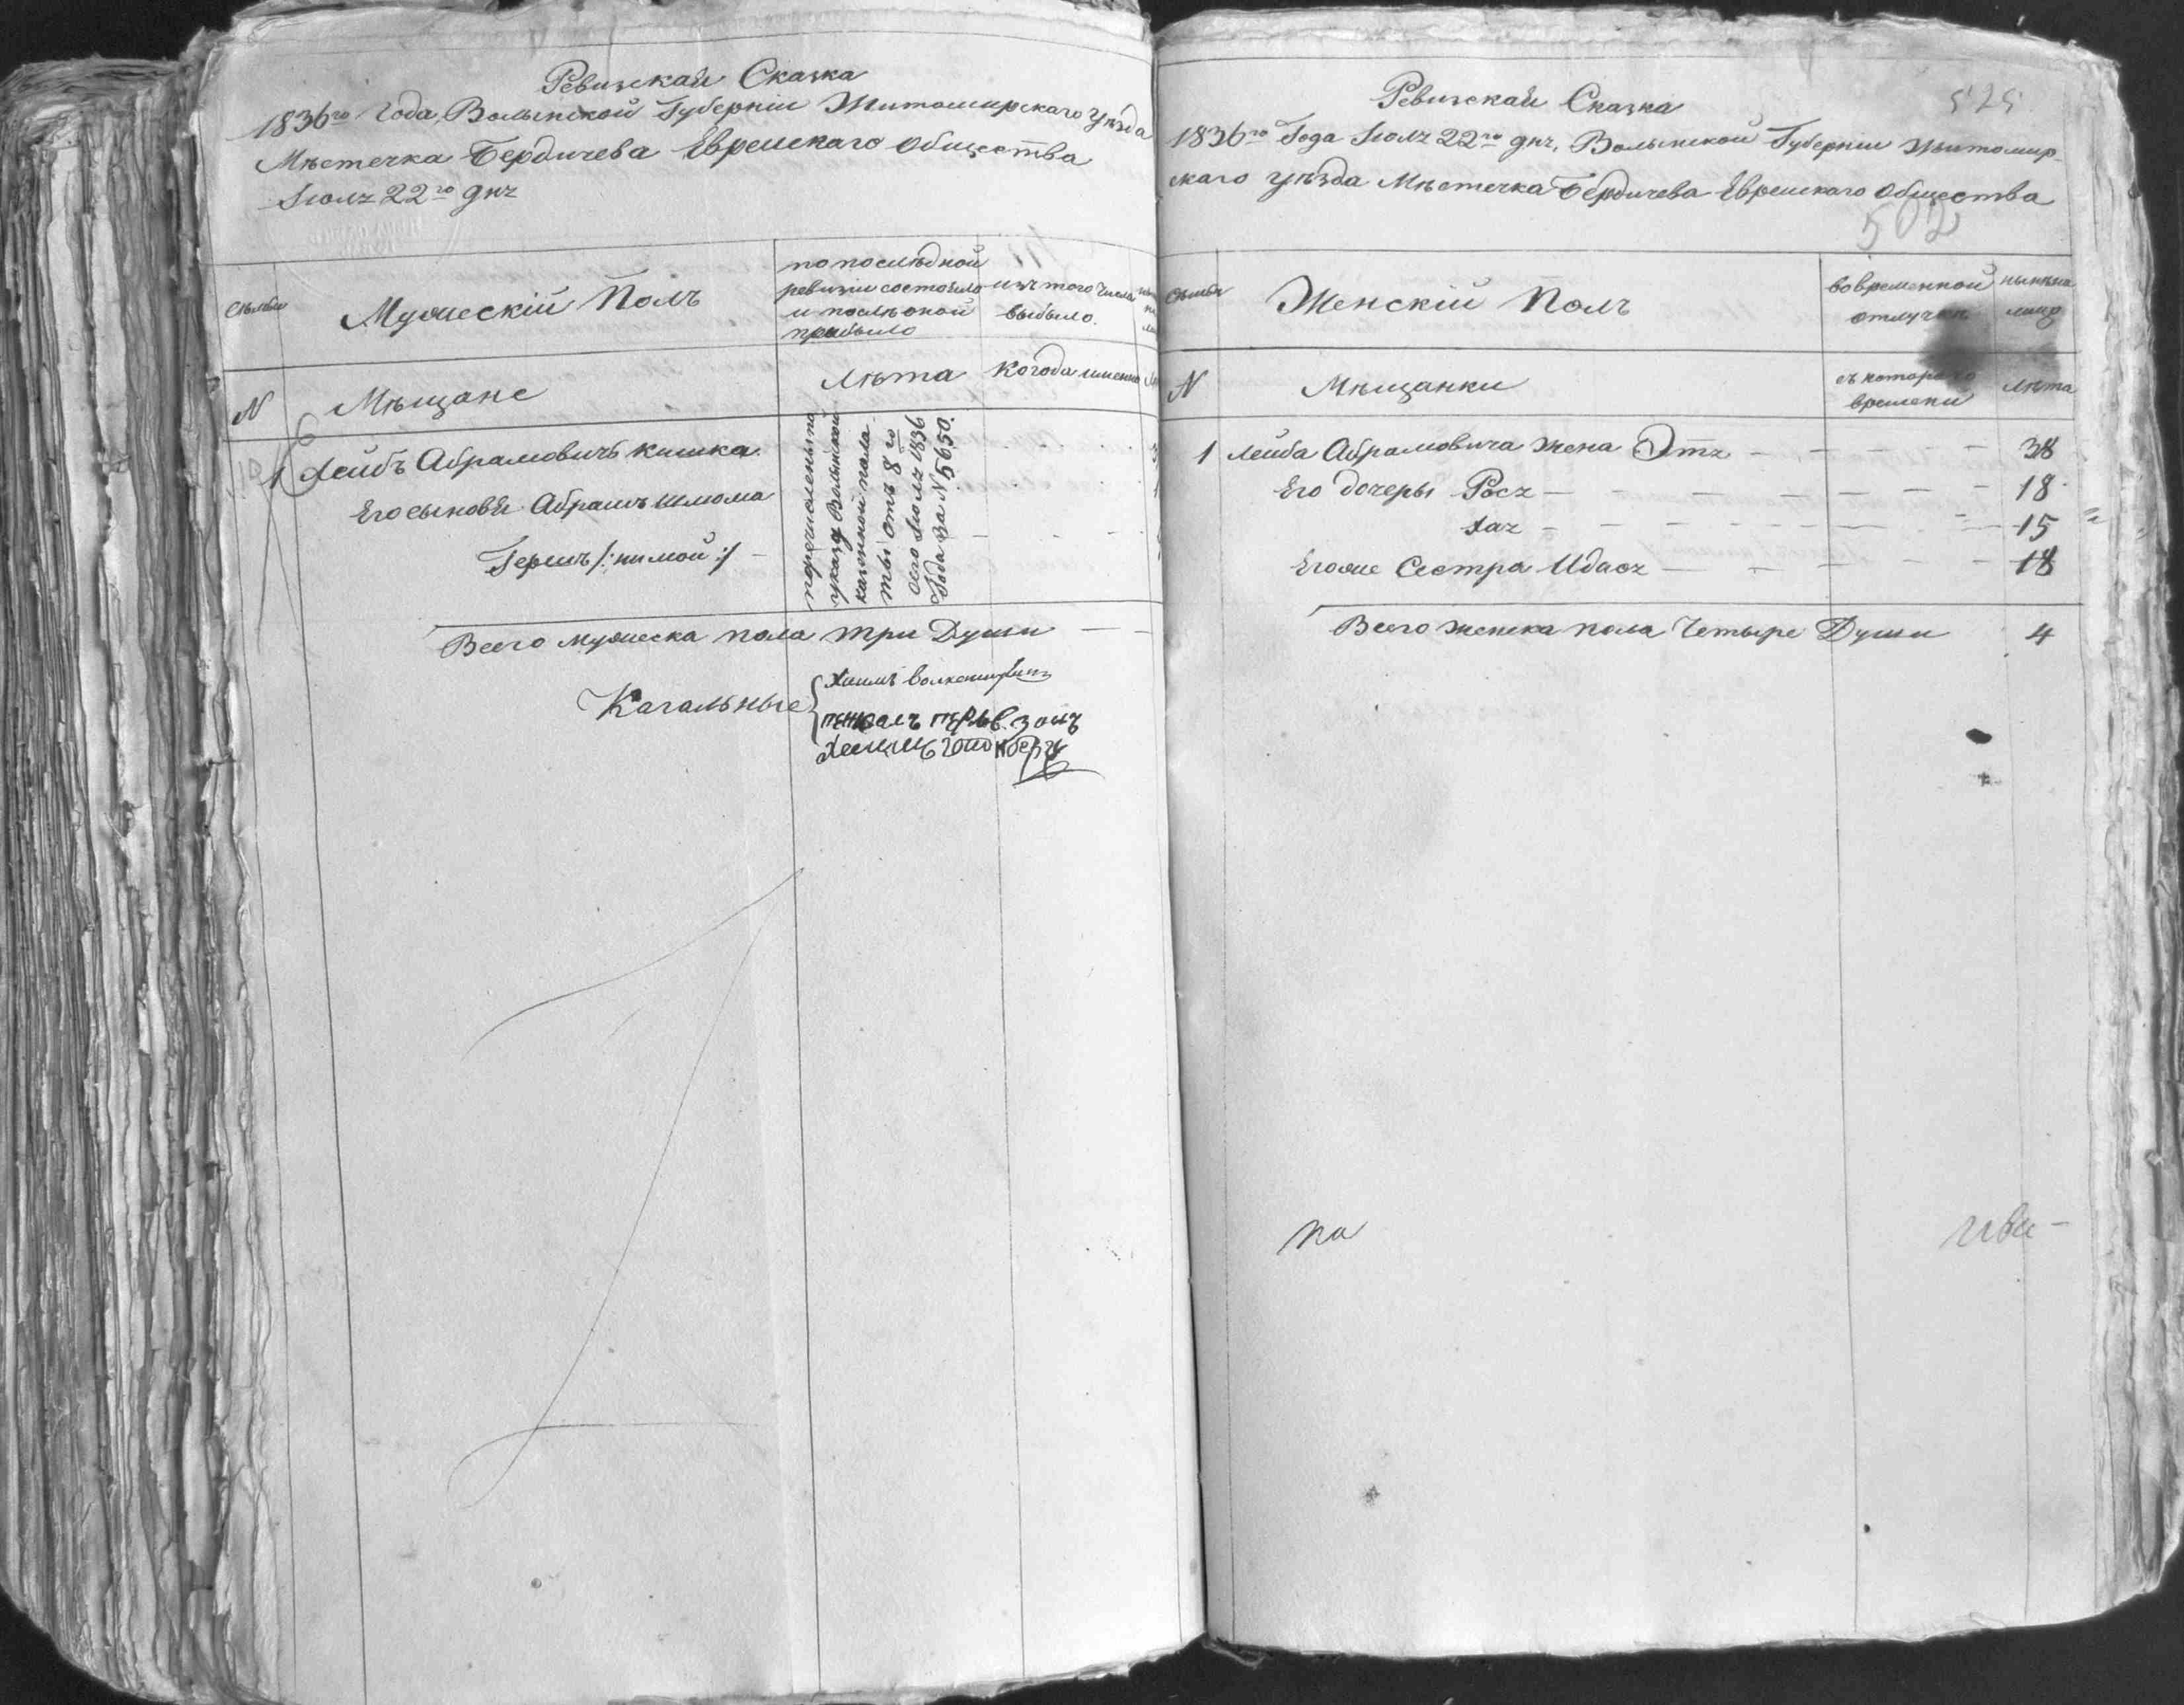 Ревизская Сказка
1836го Года, Волынской Губернiи Житомирскаго уѣзда
Мѣстечка Бердичева Еврейскаго общества
Iюля 22го дня
Семьи
Мужескiй Полъ
по послѣдной
ревизiи состояло
и послѣ оной
прибыло
изъ того числа
выбыло.
N
Мѣщане
Лѣта
Когода именно
1 Лейбъ Абрамовичъ кишка
Его сыновья Абрамъ шлома
Гершъ /: нимой :/ -
перечислены по
указу Волынской
казенной пала
ты отъ 8го
сего Iюля 1836
Года за N 5650.
Всего мужеска пола три Души
Кагальные
пѣрьв. зонъ
525
Ревизская Сказка
1836го Года Iюля 22го дня, Волынской Губернiи Житомир
скаго уѣзда Мѣстечка Бердичева Еврейскаго Общества
502
Семьи
Женскiй Полъ
во временной
отлучкѣ
нынѣ на
лицо
N
Мѣщанки
съ котораго
времени
Лѣта
1 Лейба Абрамовича жена Этя 38
Его дочеры Рося 18
Хая 15
Егоже Сестра Идася 18
Всего женска пола Четыре Души 4
по